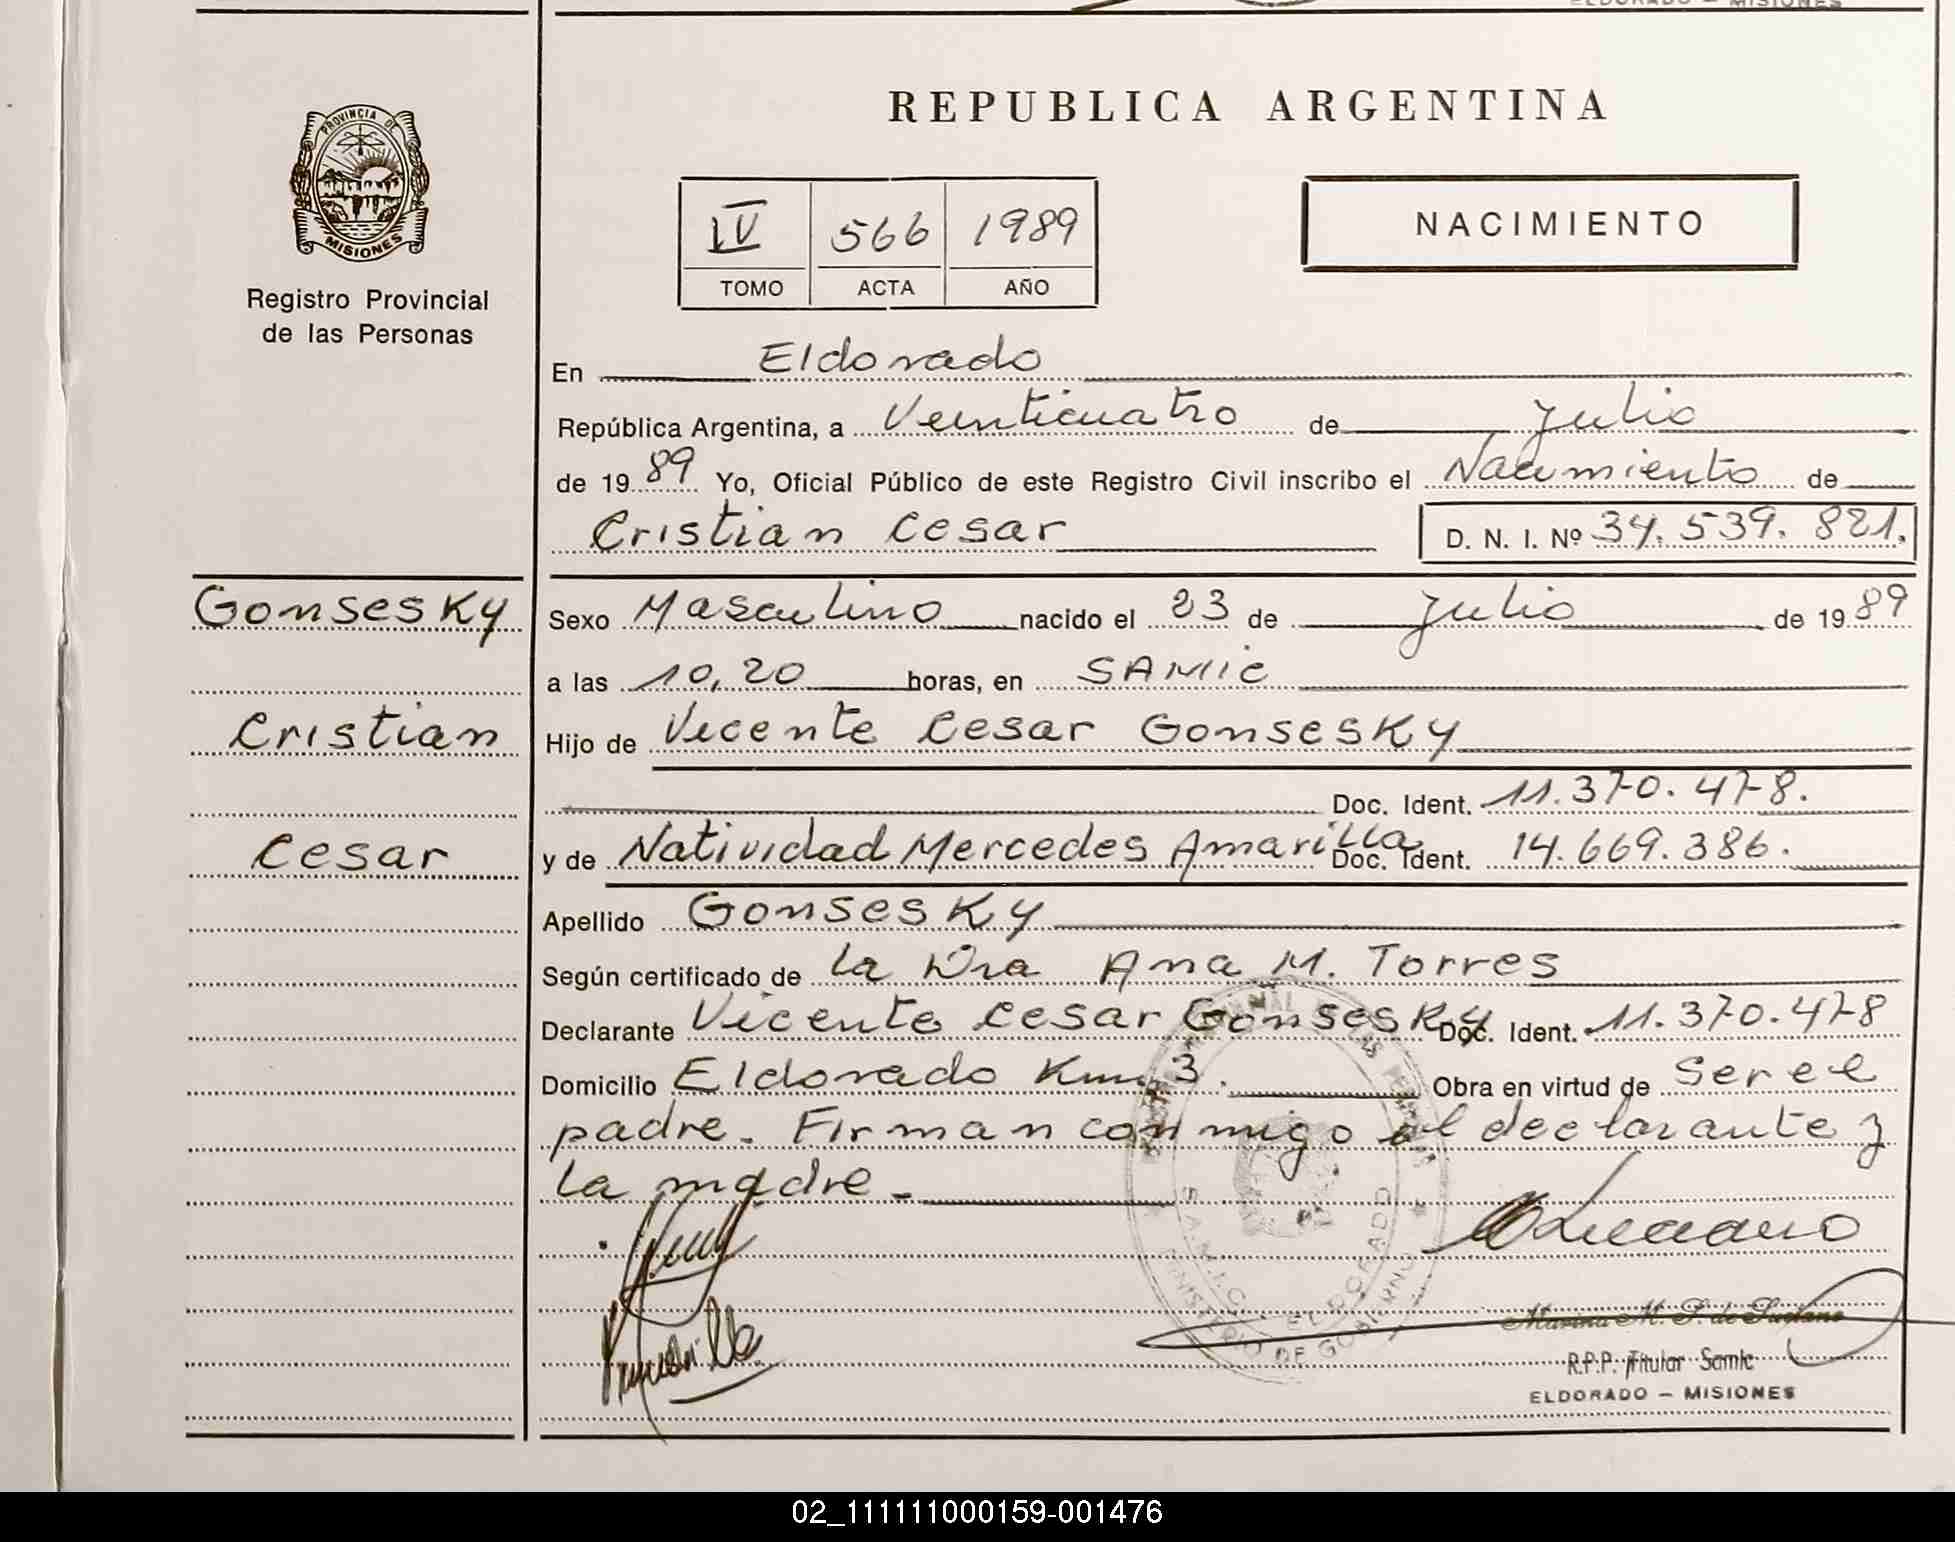 ELDORADO — MISIONES
PROVINCIA DE
MISIONES
Registro Provincial
de las Personas
REPUBLICA ARGENTINA
IV 566 1989
TOMO ACTA AÑO
NACIMIENTO
En Eldorado
República Argentina, a Veinticuatro de Julio
de 1989 Yo, Oficial Público de este Registro Civil inscribo el Nacimiento de
Cristian Cesar D. N. I. Nº 34.539.821.
Gonsesky
Cristian
Cesar
Sexo Masculino nacido el 23 de Julio de 1989
a las 10,20 horas, en SAMIC
Hijo de Vicente Cesar Gonsesky
Doc. Ident. 11.370.478.
y de Natividad Mercedes Amarilla Doc. Ident. 14.669.386.
Apellido Gonsesky
Según certificado de la Dra Ana M. Torres
Declarante Vicente Cesar Gonsesky Doc. Ident. 11.370.478
Domicilio Eldorado Km. 3. Obra en virtud de ser el
padre. Firman conmigo el declarante y
la madre.
S.A.M.I.C. ELDORADO
MINISTERIO DE GOBIERNO
Marina M. S. de Luciano
R.P.P. Titular Samic
ELDORADO — MISIONES
02_111111000159-001476